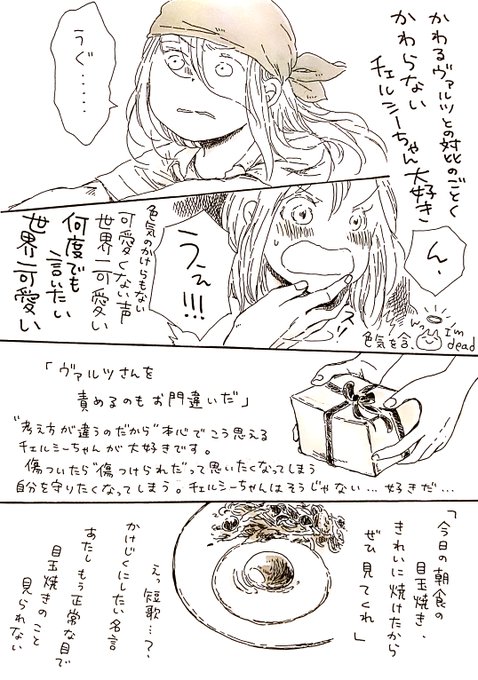 かわるヴァルツとの対比のごとく
かわらない
チェルシーちゃん大好き
うぐ……
ん、
うぇ!!!
色気のかけらもない
可愛くない声
世界一可愛い
何度でも
言いたい
世界一可愛い
色気を含
I'm
dead
「ヴァルツさんを
責めるのもお門違いだ」
"考え方が違うのだから"本心でこう思える
チェルシーちゃんが大好きです。
傷ついたら"傷つけられた"って思いたくなってしまう
自分を守りたくなってしまう。チェルシーちゃんはそうじゃない…好きだ…
「今日の朝食の
目玉焼き、
きれいに焼けたから
ぜひ見てくれ」
えっ短歌…?、
かけじくにしたい名言
あたしもう正常な目で
目玉焼きのこと
見られない